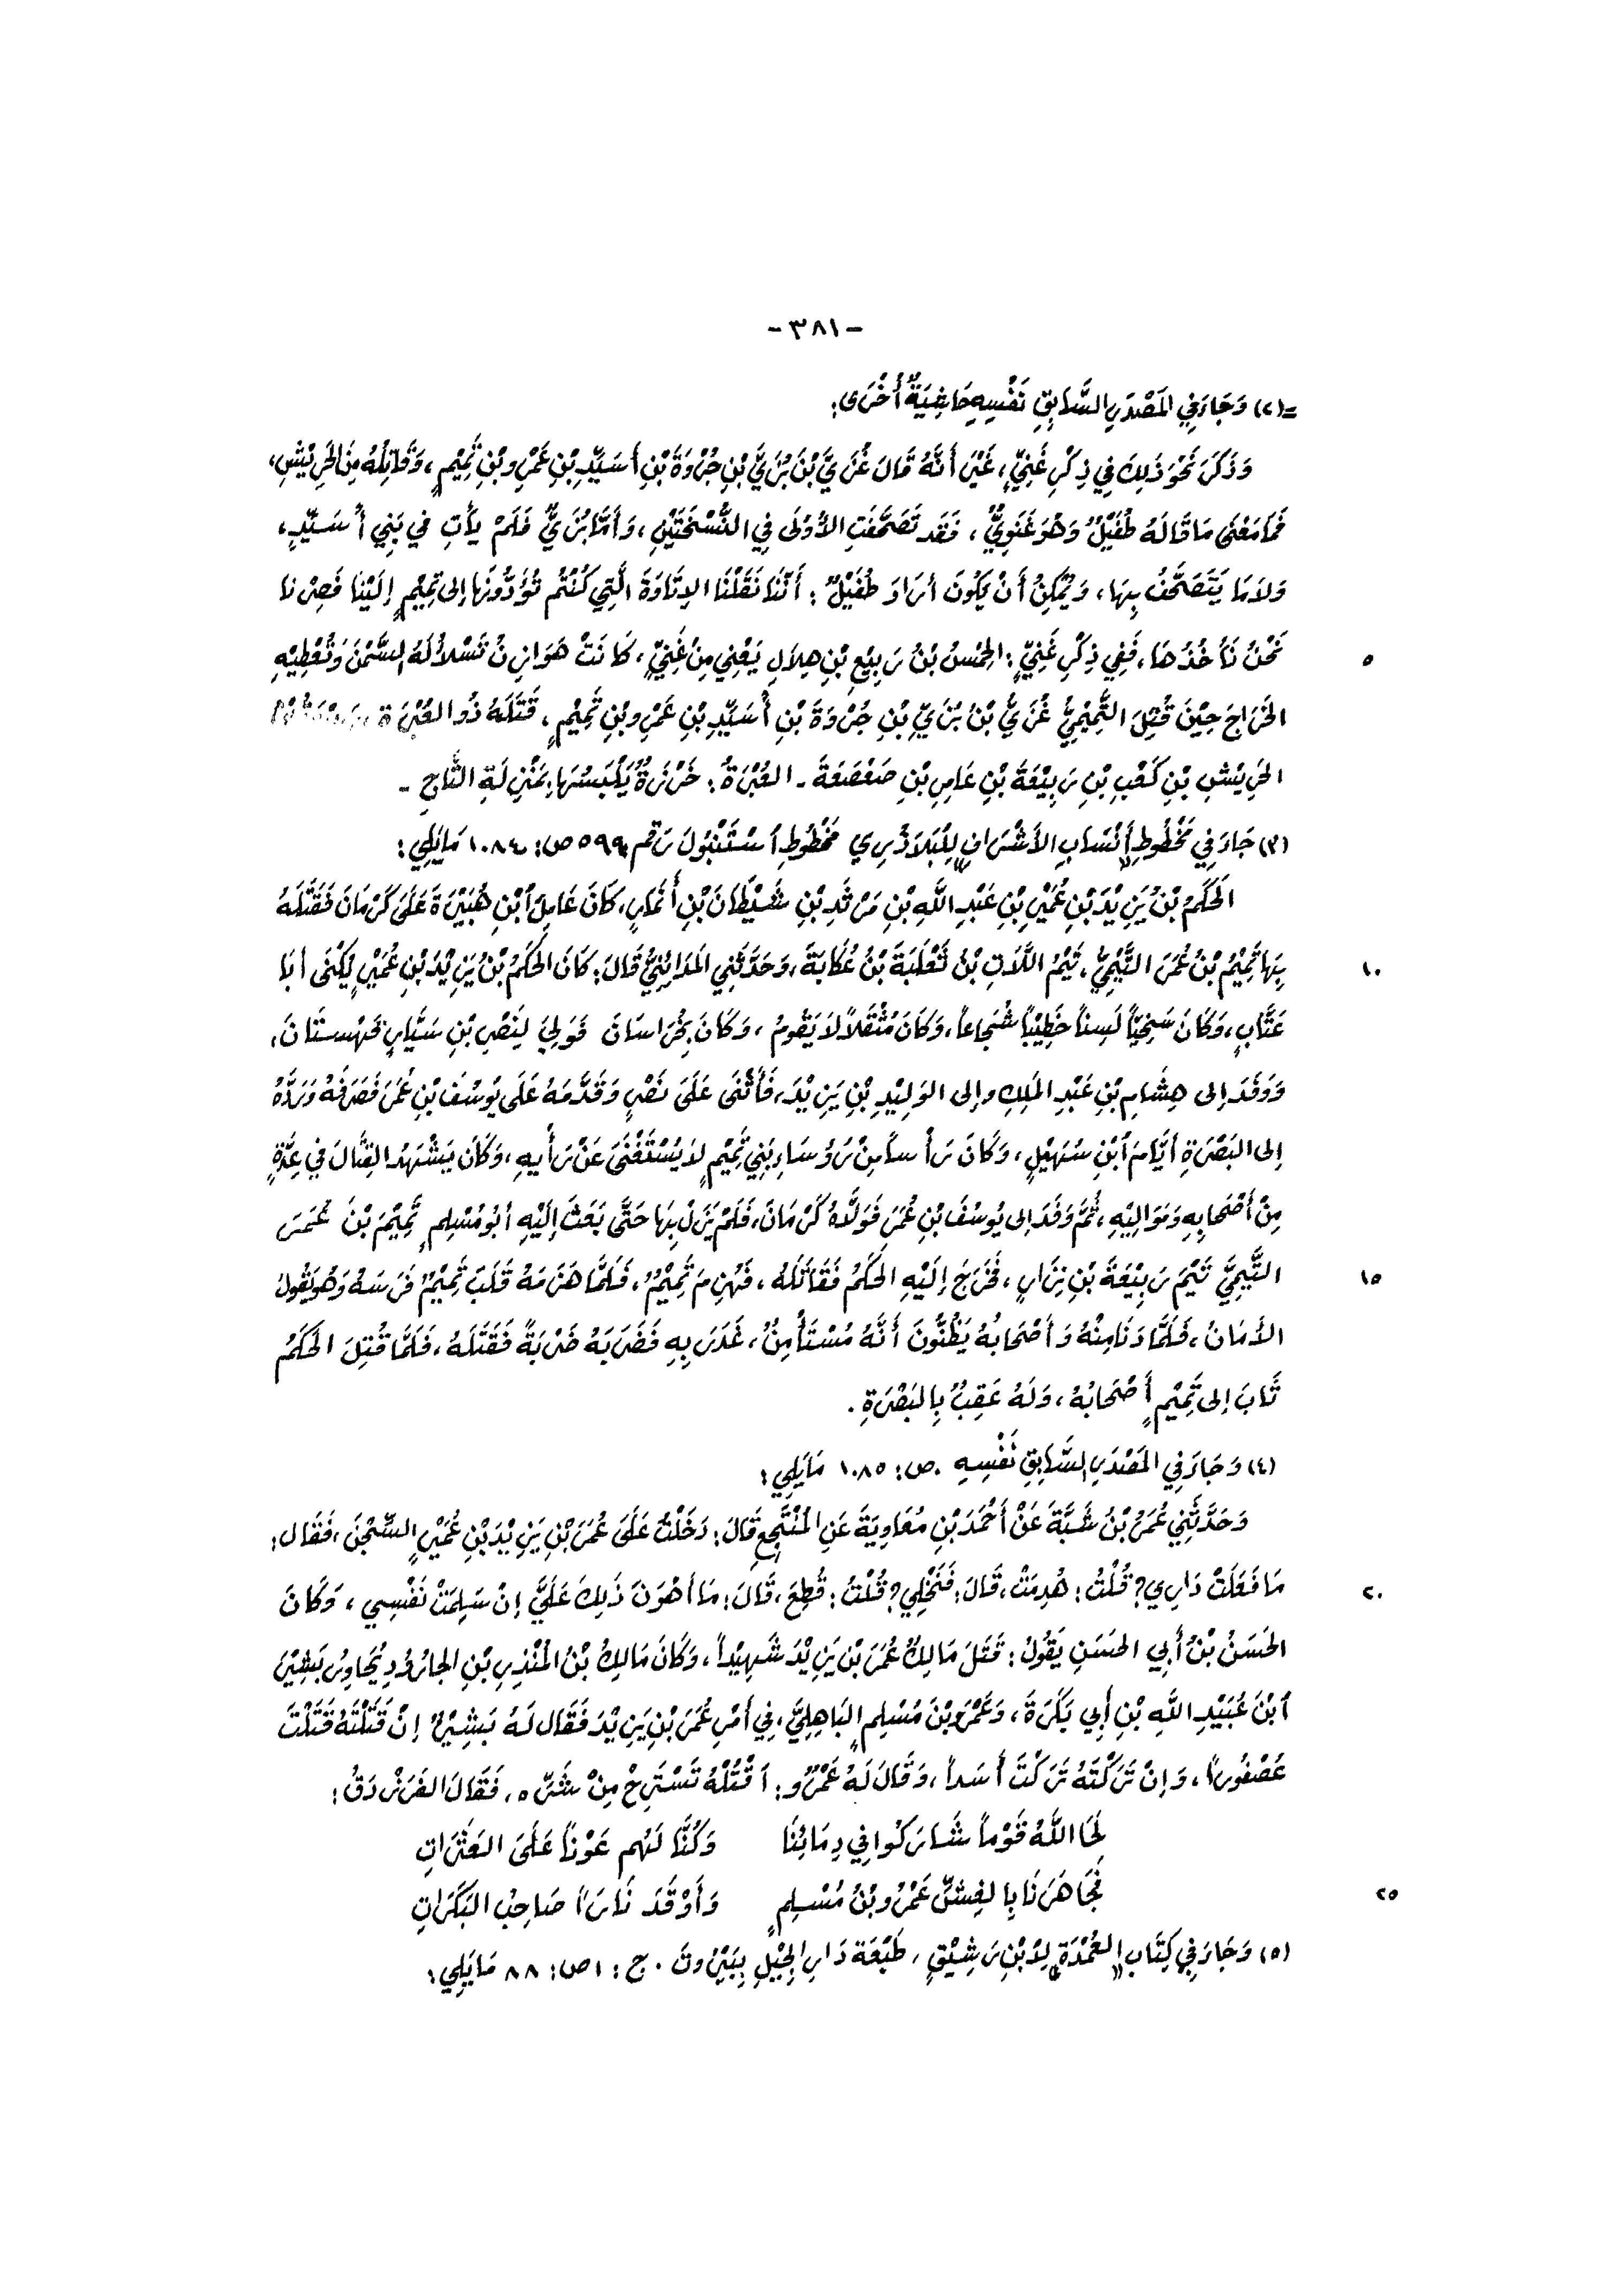 - ٣٨١ -
=(٢) وَجَاءَ فِي المَصْدَرِ السَّابِقِ نَفْسِهِ حَاشِيَةٌ أُخْرَى:
وَذَكَرَ نَحْوَ ذَلِكَ فِي ذِكْرِ غَنِيٍّ، غَيْرَ أَنَّهُ قَالَ غُزَيَّ بْنَ بُزَيَّ بْنِ جُرْوَةَ بْنِ أُسَيِّدِ بْنِ عَمْرِو بْنِ تَمِيْمٍ، وَقَاتِلُهُ مِنَ الحَرِيْشِ،
فَمَا مَعْنَى مَا قَالَهُ طُفَيْلٌ وَهْوَ غَنَوِيٌّ، فَقَد تَصَحَّفَتِ الأُوْلَى فِي النُّسْخَتَيْنِ، وَأَمَّا بُزَيٌّ فَلَمْ يَأْتِ في بَنِي أُسَيِّدٍ،
وَلا مَا يَتَصَحَّفُ بِهَا، وَيُمْكِنُ أَنْ يَكُونَ أرَادَ طُفَيْلٌ: أَنَّنَا نَقَلْنَا الإتَاوَةَ الَّتِي كُنْتُم تُؤَدُّونَهَا إلى تَمِيْمٍ إلَيْنَا فَصِرْنَا
نَحْنُ نَأخُذُهَا، فَفِي ذِكْرِ غَنِيٍّ: الحِمْسُ بْنُ رَبِيْعِ بْنِ هِلالٍ يَعْنِي مِنْ غَنِيٍّ، كَانَتْ هَوَازِنُ تَسْلأُ لَهُ السَّمْنَ وَتُعْطِيْهِ
٥
الخَرَاجَ حِيْنَ قُتِلَ التَّمِيْمِيُّ غُزَيُّ بْنُ بُزَيِّ بْنِ جُرْوَةَ بْنِ أُسَيِّدِ بْنِ عَمْرِو بْنِ تَمِيْمٍ، قَتَلَهُ ذُو الغُبْرَةِ
الحَرِيْشِ بْنِ كَعْبِ بْنِ رَبِيْعَةَ بْنِ عَامِرِ بْنِ صَعْصَعَةَ - الغُبْرَةُ: خَرْزَةٌ يَلْبَسُهَا بِمَنْزِلَةِ التَّاجِ -
(٣) جَاءَ فِي مَخْطُوطِ «أَنْسَابِ الأَشْرَافِ» لِلْبَلاذُرِي مَخْطُوطِ اسْتَنْبُولَ رَقم ٥٩٩ ص: ١٠٨٤ مَا يَلِي:
الحَكَمُ بْنُ يَزِيْدَ بْنِ عُمَيْرِ بْنِ عَبْدِ اللَّهِ بْنِ مَرْثَدِ بْنِ شَيْطَانَ بْنِ أَنْمَارٍ، كَانَ عَامِلَ ابْنِ هُبَيْرَةَ عَلَى كَرْمَانَ فَقَتَلَهُ
بِهَا تَمِيْمُ بْنُ عُمَرَ التَّيْمِيُّ، تَيْمُ اللَّاتِ بْنُ ثَعْلَبَةَ بْنُ عُكَابَةَ، وَحَدَّثَنِي المَدَائِنِيُّ قَالَ: كَانَ الحَكَمُ بْنُ يَزِيْدَ بْنِ عُمَيْرٍ يُكْنَى أبَا
١٠
عَتَّابٍ، وَكَانَ سَخِيّاً لَسِناً خَطِيْباً شُجَاعاً، وَكَانَ مُثْقَلاً لاَ يَقُومُ، وَكَانَ بِخُرَاسَانَ فَوَلِيَ لِنَصْرِ بْنِ سَيَّارٍ قهستَانَ،
وَوَفَدَ إلى هِشَامِ بْنِ عَبْدِ المَلِكِ وإلى الوَلِيْدِ بْنِ يَزِيْدَ، فَأَثْنَى عَلَى نَصْرٍ وَقَدَّمَهُ عَلَى يُوسُفَ بْنِ عُمَرَ فَصَرَفَهُ وَرَدَّهُ
إلى البَصْرَةِ أيَّامَ ابْنِ سُهَيْلٍ، وَكَانَ رَأْساً مِنْ رُؤَسَاءِ بَنِي تَمِيْمٍ لا يُسْتَغْنَى عَنْ رَأْيِهِ، وَكَانَ يَشْهَدُ القِتَالَ فِي عِدَّةٍ
مِنْ أَصْحَابِهِ وَمَوَالِيْهِ، ثُمَّ وَفَدَ إلى يُوسُفَ بْنِ عُمَرَ فَوَلَّاهُ كَرْمَانَ، فَلَمْ يَزَلْ بِهَا حَتَّى بَعَثَ إلَيْهِ أبُو مُسْلِمٍ تَمِيْمَ بْنَ عُمَرَ
التَّيْمِيَّ تَيْمَ رَبِيْعَةَ بْنِ نِزَارٍ، فَخَرَجَ إلَيْهِ الحَكَمُ فَقَاتَلَهُ، فَهُزِمَ تَمِيْمٌ، فَلَمَّا هَزَمَهُ قَلَبَ تَمِيْمٌ فَرَسَهُ وَهُوَ يَقُولُ
١٥
الأَمَانُ، فَلَمَّا دَنَا مِنْهُ وَأَصْحَابُهُ يَظُنُّونَ أَنَّهُ مُسْتَأْمِنٌ، غَدَرَ بِهِ فَضَرَبَهُ ضَرْبَةً فَقَتَلَهُ، فَلَمَّا قُتِلَ الحَكَمُ
ثَابَ إلى تَمِيْمٍ أَصْحَابُهُ، وَلَهُ عَقِبٌ بِالبَصْرَةِ.
(٤) وَجَاءَ فِي المَصْدَرِ السَّابِقِ نَفْسِهِ. ص: ١٠٨٥ مَا يَلِي:
وَحَدَّثَنِي عُمَرُ بْنُ شَبَّةَ عَنْ أَحْمَدَ بْنِ مُعَاوِيَةَ عَنِ المُنْتَجِعِ قَالَ: دَخَلْتُ عَلَى عُمَرَ بْنِ يَزِيْدَ بْنِ عُمَيْرٍ السِّجْنَ، فَقَالَ:
مَا فَعَلَتْ دَارِي؟ قُلْتُ: هُدِمَتْ، قَالَ: فَنَخْلِي؟ قُلْتُ: قُطِعَ، قَالَ: مَا أهْوَنَ ذَلِكَ عَلَيَّ إنْ سَلِمَتْ نَفْسِي، وَكَانَ
٢٠
الحَسَنُ بْنُ أَبِي الحَسَنِ يَقُولُ: قَتَلَ مَالِكٌ عُمَرَ بْنَ يَزِيْدَ شَهِيْداً، وَكَانَ مَالِكُ بْنُ المُنْذِرِ بْنِ الجَارُوْدِ يُحَاوِرُ بَشِيْرَ
ابْنَ عُبَيْدِ اللَّهِ بْنِ أَبِي بَكْرَةَ، وَعَمْرَو بْنَ مُسْلِمٍ البَاهِلِيَّ، فِي أَمْرِ عُمَرَ بْنِ يَزِيْدَ فَقَالَ لَهُ بَشِيْرٌ إنْ قَتَلْتَهُ قَتَلْتَ
عُصْفُوراً، وَإنْ تَرَكْتَهُ تَرَكْتَ أَسَداً، وَقَالَ لَهُ عَمْرٌو: اقْتُلْهُ تَسْتَرِحْ مِنْ شَرِّهِ، فَقَالَ الفَرَزْدَقُ:
لَحَا اللَّهُ قَوْماً شَارَكُوا فِي دِمَائِنَا وَكُنَّا لَهُم عَوْناً عَلَى العَثَرَاتِ
فَجَاهَرَنَا بِالغِشِّ عَمْرُو بْنُ مُسْلِمٍ وَأَوْقَدَ نَاراً صَاحِبُ البَكَرَاتِ
٢٥
(٥) وَجَاءَ فِي كِتَابِ «العُمْدَةِ» لابْنِ رَشِيْقٍ، طَبْعَة دَارِ الجِيْلِ بِبَيْرُوتَ. ج: ١ ص: ٨٨ مَا يَلِي: